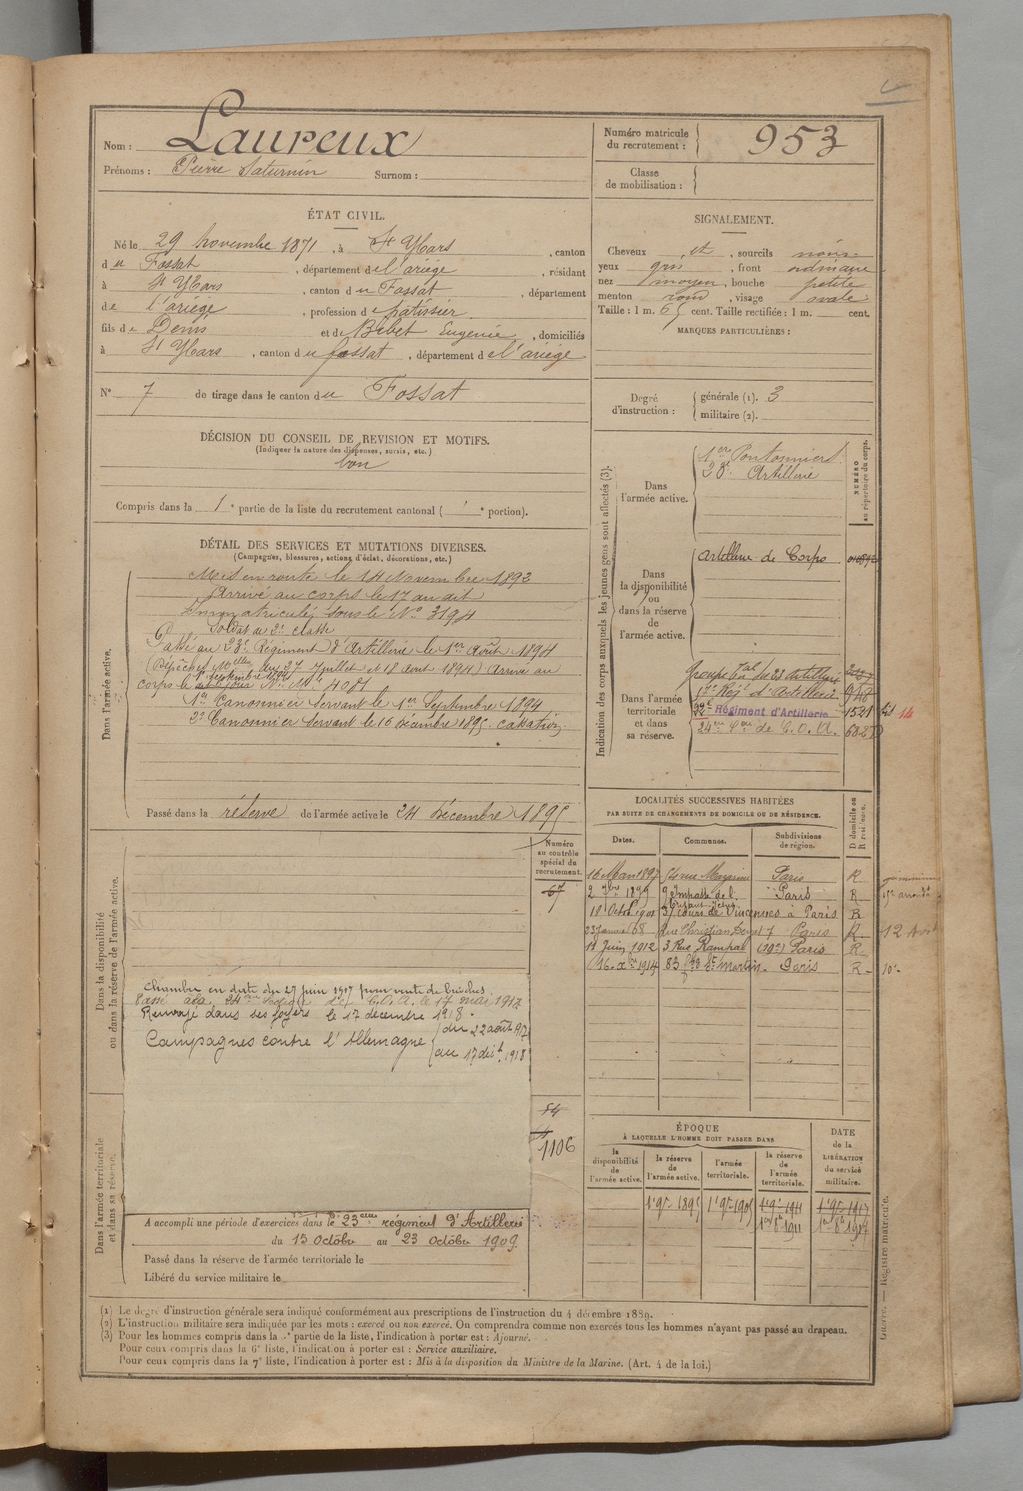 Nom : Laureux
Prénoms : Pierre Saturnin Surnom :
Numéro matricule du recrutement : 953
Classe de mobilisation :
ÉTAT CIVIL.
Né le 29 novembre 1871, à St Ybars, canton
du Fossat, département de l'ariège, résidant
à St Ybars, canton du Fossat, département
de l'ariège, profession de Pâtissier,
fils de Denis et de Babet Eugenie, domiciliés
à St Ybars, canton du fossat, département de l'ariège
N° 7 de tirage dans le canton du Fossat
SIGNALEMENT.
Cheveux et, sourcils noirs
yeux gris, front ordinaire
nez moyen, bouche petite
menton rond, visage ovale
Taille : 1 m. 65 cent. Taille rectifiée : 1 m. cent.
MARQUES PARTICULIÈRES :
Degré d'instruction : générale (1). 3
militaire (2).
DÉCISION DU CONSEIL DE REVISION ET MOTIFS.
(Indiquer la nature des dispenses, sursis, etc.)
bon
Compris dans la 1e partie de la liste du recrutement cantonal ( e portion).
DÉTAIL DES SERVICES ET MUTATIONS DIVERSES.
(Campagnes, blessures, actions d'éclat, décorations, etc.)
Dans l'armée active.
Mis en route le 14 Novembre 1892
Arrivé au corps le 17 au dit
Immatriculé sous le No 3194
Soldat de 2e classe
Passé au 23e Régiment d'Artillerie le 1er Août 1894
(Dépêches Mlles du 27 Juillet et 18 août 1894) Arrivé au
corps le septembre 1894 No Mle 4081
1er Canonnier Servant le 1er Septembre 1894
2e Canonnier Servant le 16 décembre 1895 cassation
Passé dans la réserve de l'armée active le 24 décembre 1895
Indication des corps auxquels les jeunes gens sont affectés (3).
NUMÉRO au répertoire du corps.
Dans l'armée active.
1er Pontonniers
23e Artillerie
Dans la disponibilité ou dans la réserve de l'armée active.
Artillerie de Corps
Dans l'armée territoriale et dans sa réserve.
Groupe Tal du 23 Artillerie
17e Rég. d'Artillerie 948
22e Régiment d'Artillerie 1521 bis 14
24me Son de C.O.A.
LOCALITÉS SUCCESSIVES HABITÉES
PAR SUITE DE CHANGEMENTS DE DOMICILE OU DE RÉSIDENCE.
Dates. Communes. Subdivisions de région. D domicile ou R résidence.
16 Mars 1897 rue Paris R
2 7bre 1899 9 Impasse de l'Enfant Jésus Paris R 15e arrondt
18 Octob 1901 37 cours de Vincennes à Paris R
23 Janvier 08 Rue Christian 7 Paris R 12
18 Juin 1912 3 Rue Rampal (19e) Paris R
16 Xbre 1914 83 Fbg St Martin Paris R 10e
Numéro au contrôle spécial du recrutement.
67
Dans la disponibilité ou dans la réserve de l'armée active.
Chambre en date du 27 juin 1917 pour vente de brioches
Passé à la 24me Section de C.O.A. le 17 mai 1917
Renvoyé dans ses foyers le 17 decembre 1918
Campagnes contre l'Allemagne du 22 août
au 17 déc. 1918
84
1106
Dans l'armée territoriale et dans sa réserve.
A accompli une période d'exercices dans le 23eme régiment d'Artillerie
du 15 Octobre au 23 Octobre 1909
Passé dans la réserve de l'armée territoriale le
Libéré du service militaire le
ÉPOQUE
À LAQUELLE L'HOMME DOIT PASSER DANS
DATE de la LIBÉRATION du service militaire.
la disponibilité de l'armée active. la réserve de l'armée active. l'armée territoriale. la réserve de l'armée territoriale.
1er 9bre 1895 1er 9bre 1905 1er 9bre 1911 1er 9bre 1917
1er 8bre 1911
Guerre. — Registre matricule.
(1) Le degré d'instruction générale sera indiqué conformément aux prescriptions de l'instruction du 4 décembre 1889.
(2) L'instruction militaire sera indiquée par les mots : exercé ou non exercé. On comprendra comme non exercés tous les hommes n'ayant pas passé au drapeau.
(3) Pour les hommes compris dans la e partie de la liste, l'indication à porter est : Ajourné.
Pour ceux compris dans la 6e liste, l'indication à porter est : Service auxiliaire.
Pour ceux compris dans la 7e liste, l'indication à porter est : Mis à la disposition du Ministre de la Marine. (Art. 4 de la loi.)